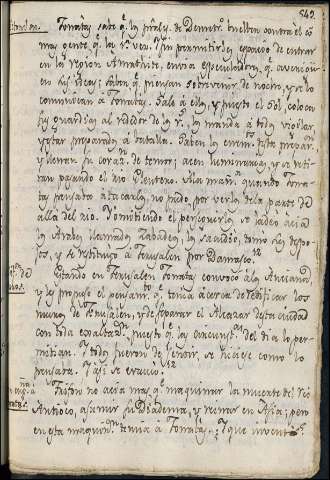 542
Jonatas sabe q. los prales. de Demetr. buelben contra el co
mas gente q. la 1ª. ven. sin permitirles espacio de entrar
en la region Amathite, envia especuladores, q. averiguen
sus ideas; saben q. piensan sobrevenir de noche, y se lo
comunican a Jonatas. Sale a ellos, y puesto el Sol, coloca
sus guardias al rededor de los R. la manda a todos vigilar,
y estar preparado a batalla. Saben los enem. esta prepar.
y llenan su coraz. de temor; acen luminarias, y se reti-
ran pasando el rio Eleutero. A la mañ. quando Jona-
tas pensaba atacarlos, no pudo, por verlos de la parte de
alla del rio. Y omitiendo el perseguirlos, se ladeo acia
los Arabes llamados Zabadeos, los sacudio, tomo sus despo-
jos, y se restituyo a Jerusalen por Damasco.
Estando en Jerusalen Jonatas convoco a los Ancianos
y les propuso el pensam.to q. tenia acerca de reedificar los
muros de Jerusalen, y de separar el Alcazar desta ciudad
con toda exactitud, puesto q. las circunst.as del dia lo per-
mitian. Y todos fueron de sentir, se hiciese como lo
pensaba. Y asi se executo.
Trifon no acia mas q. maquinar la muerte del rei
Antioco, asumir su Diadema, y reinar en Asia; pero
en esta maquin. temia a Jonatas. Y que invento?